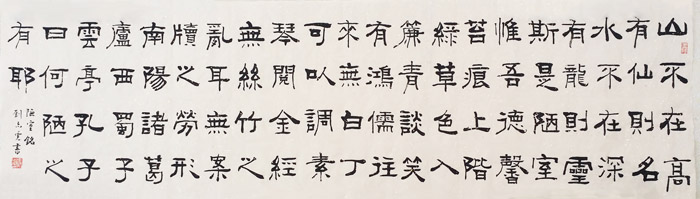 山不在高
有仙則名
水不在深
有龍則靈
斯是陋室
惟吾德馨
苔痕上階
綠草色入
簾青談笑
有鴻儒往
來無白丁
可以調素
琴閱金經
無絲竹之
亂耳無案
牘之勞形
南陽諸葛
廬西蜀子
雲亭孔子
曰何陋之
有耶
陋室銘
劉書